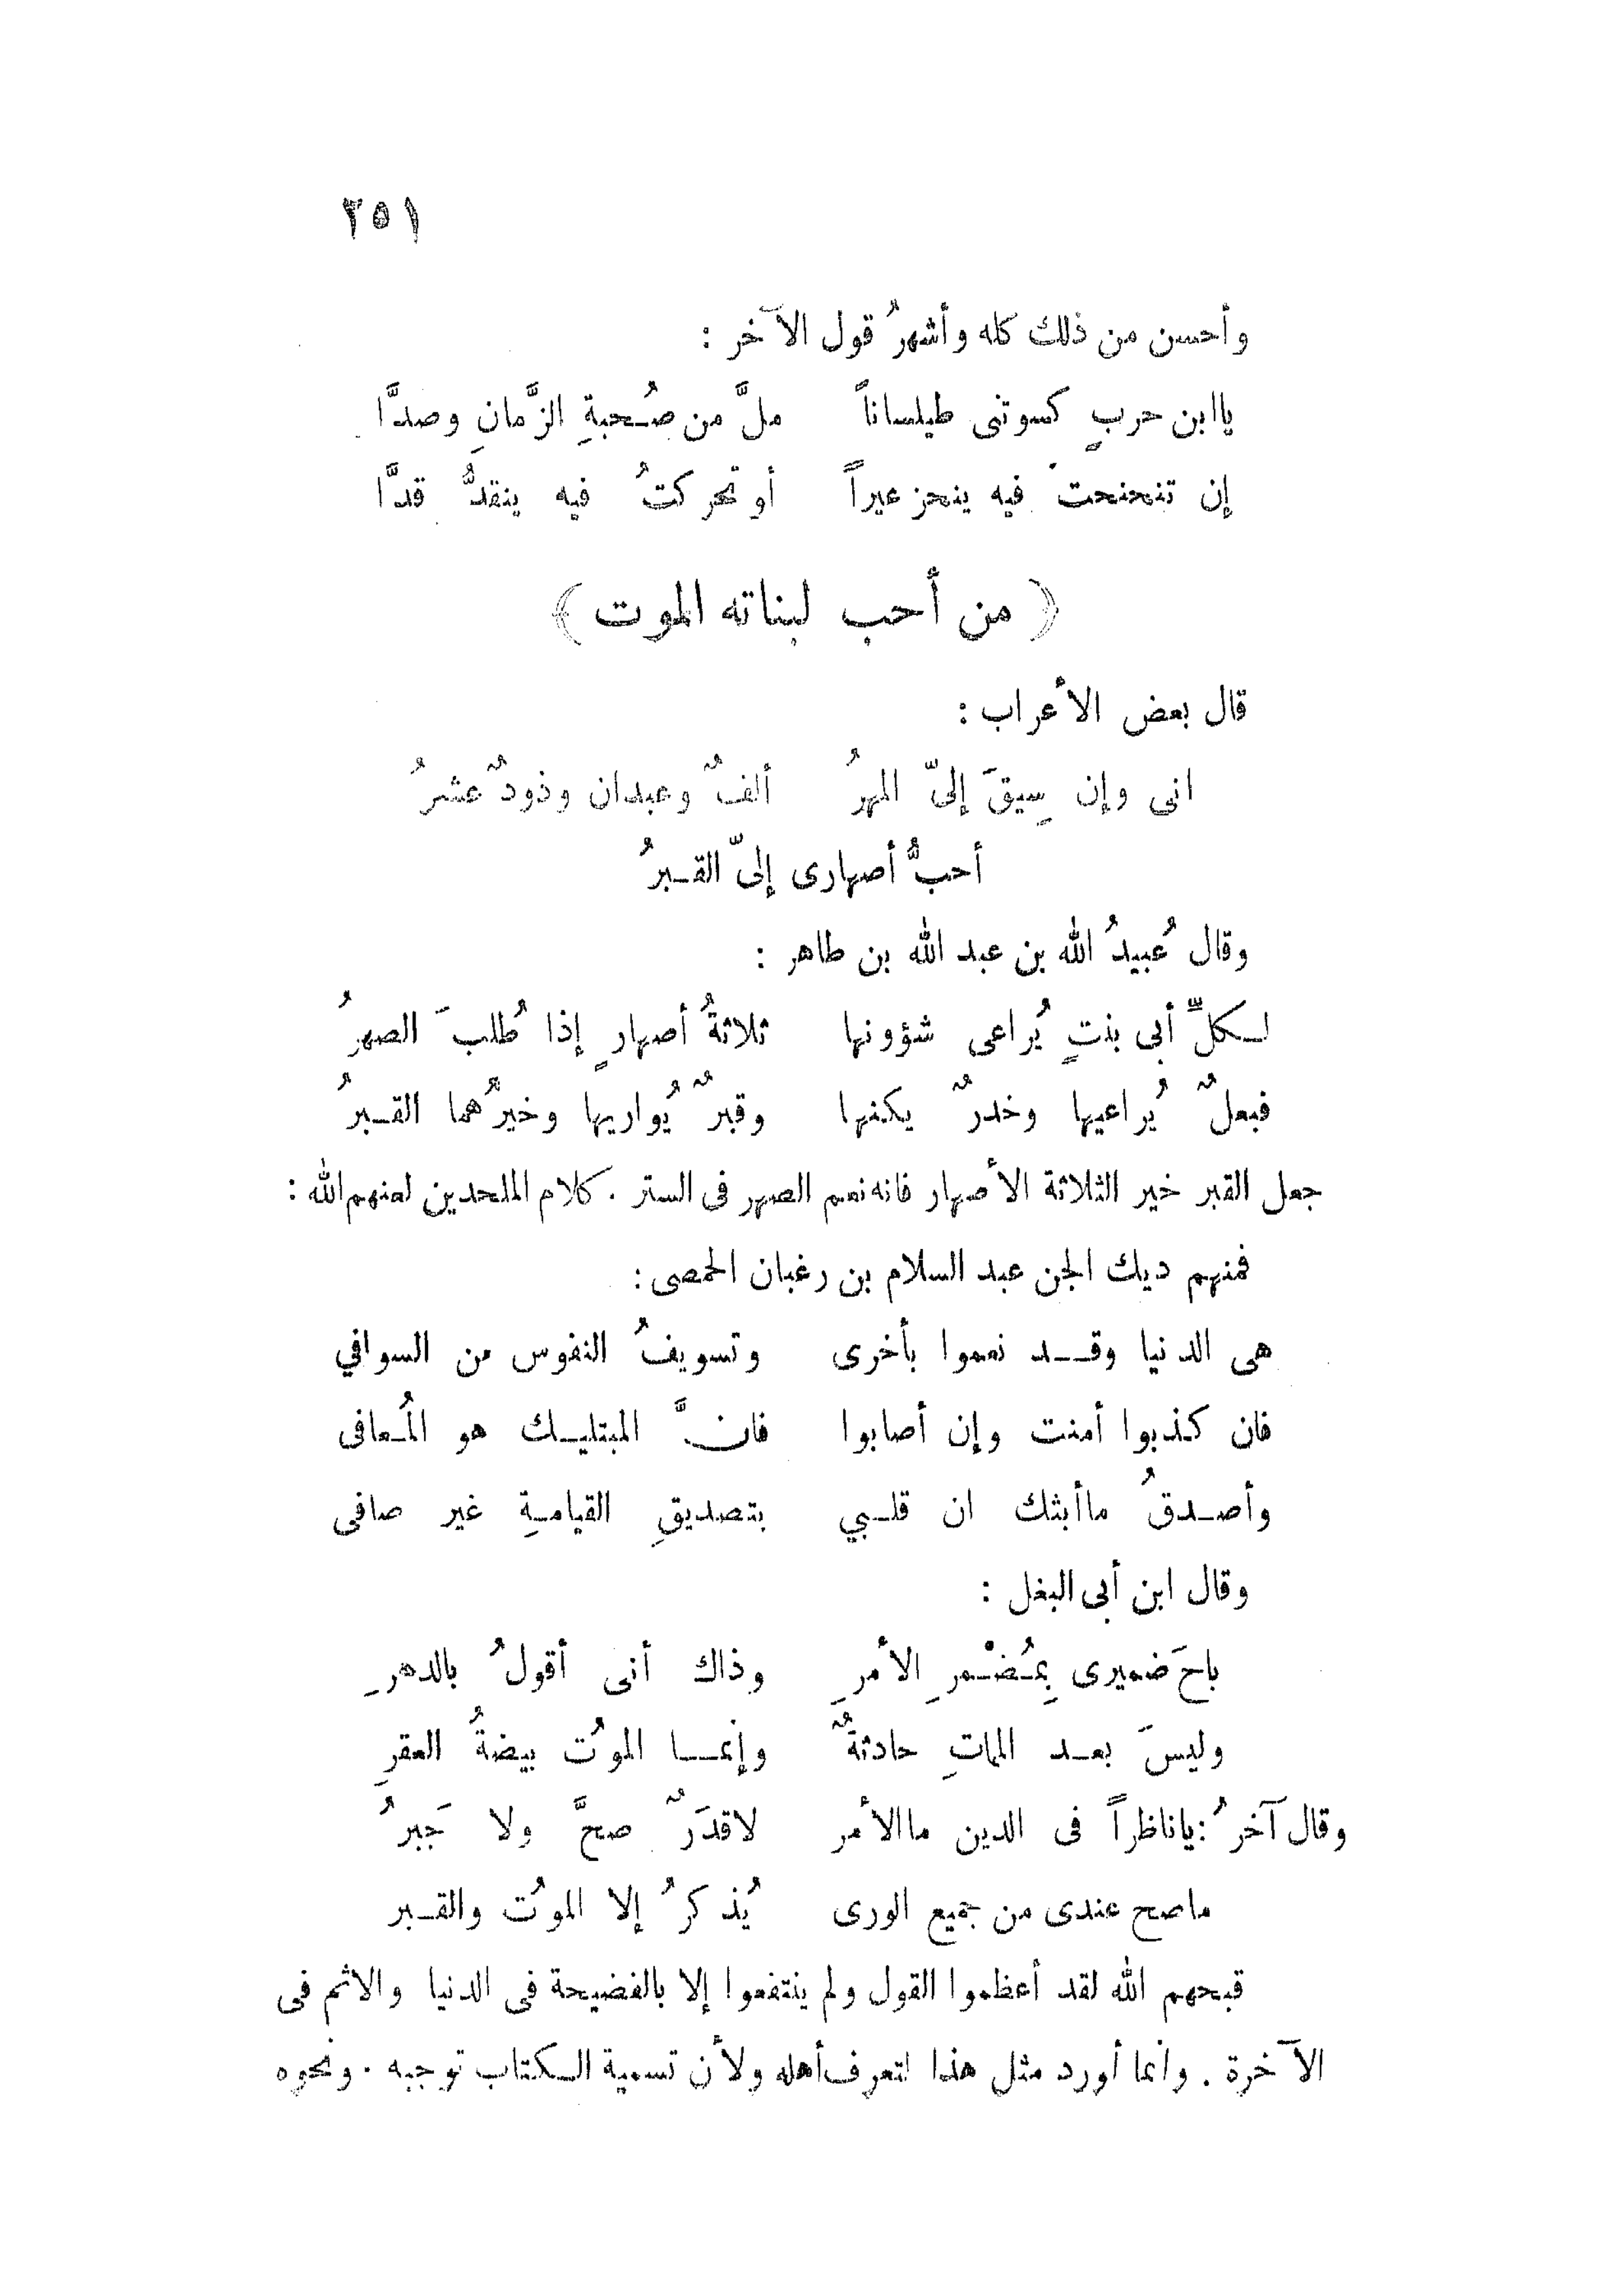 ٢٥١
وأحسن من ذلك كله وأشهرُ قول الآخر :
ياابن حربٍ كسوتنى طيلساناً ملَّ من صُحبةِ الزَّمانِ وصدَّا
إن تنحنحت فيه ينحز عيراً أو تحركتُ فيه ينقدُّ قدَّا
﴿ من أحب لبناته الموت ﴾
قال بعض الأعراب :
انى وإن سِيقَ إلىّ المهرُ ألفٌ وعبدان وذودٌ عشرُ
أحبُّ أصهارى إلىّ القبرُ
وقال عُبيدُ الله بن عبد الله بن طاهر :
لكلِّ أبى بنتٍ يُراعى شؤونها ثلاثةُ أصهارٍ إذا طُلبَ الصهرُ
فبعلٌ يُراعيها وخدرٌ يكنها وقبرٌ يُواريها وخيرُهما القبرُ
جعل القبر خير الثلاثة الأصهار فانه نعم الصهر فى الستر . كلام الملحدين لعنهم الله :
فمنهم ديك الجن عبد السلام بن رغبان الحمصى :
هى الدنيا وقد نعموا بأخرى وتسويفُ النفوس من السوافي
فان كذبوا أمنت وإن أصابوا فانَّ المبتليك هو المُعافى
وأصدقُ ماأبثك ان قلبي بتصديقِ القيامةِ غير صافى
وقال ابن أبى البغل :
باحَ ضميرى بِمُضْمرِ الأمرِ وذاك أنى أقولُ بالدهرِ
وليسَ بعد المماتِ حادثةٌ وإنما الموُت بيضةُ العقرِ
وقال آخرُ : ياناظراً فى الدين ماالأمر لاقدَرٌ صحَّ ولا جَبرُ
ماصح عندى من جميع الورى يُذكرُ إلا الموُت والقبر
قبحهم الله لقد أعظموا القول ولم ينتفعوا إلا بالفضيحة فى الدنيا والاثم فى
الآخرة . وانما أورد مثل هذا لتعرف أهله ولأن تسمية الكتاب توجبه . ونحوه